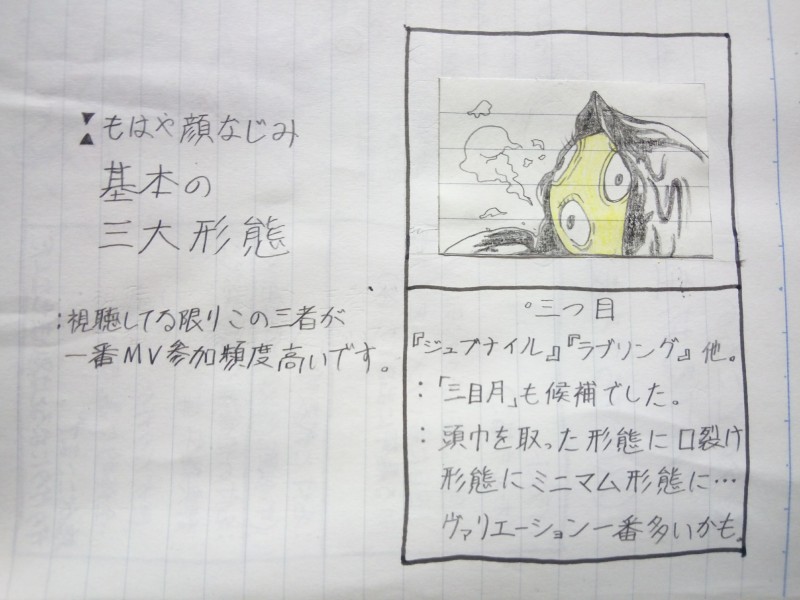 もはや顔なじみ
基本の
三大形態
:視聴してる限りこの三者が
一番MV参加頻度高いです。
。三つ目
『ジュブナイル』『ラブリング』他。
:「三日月」も候補でした。
:頭巾を取った形態に口裂け
形態にミニマム形態に…
ヴァリエーション一番多いかも。